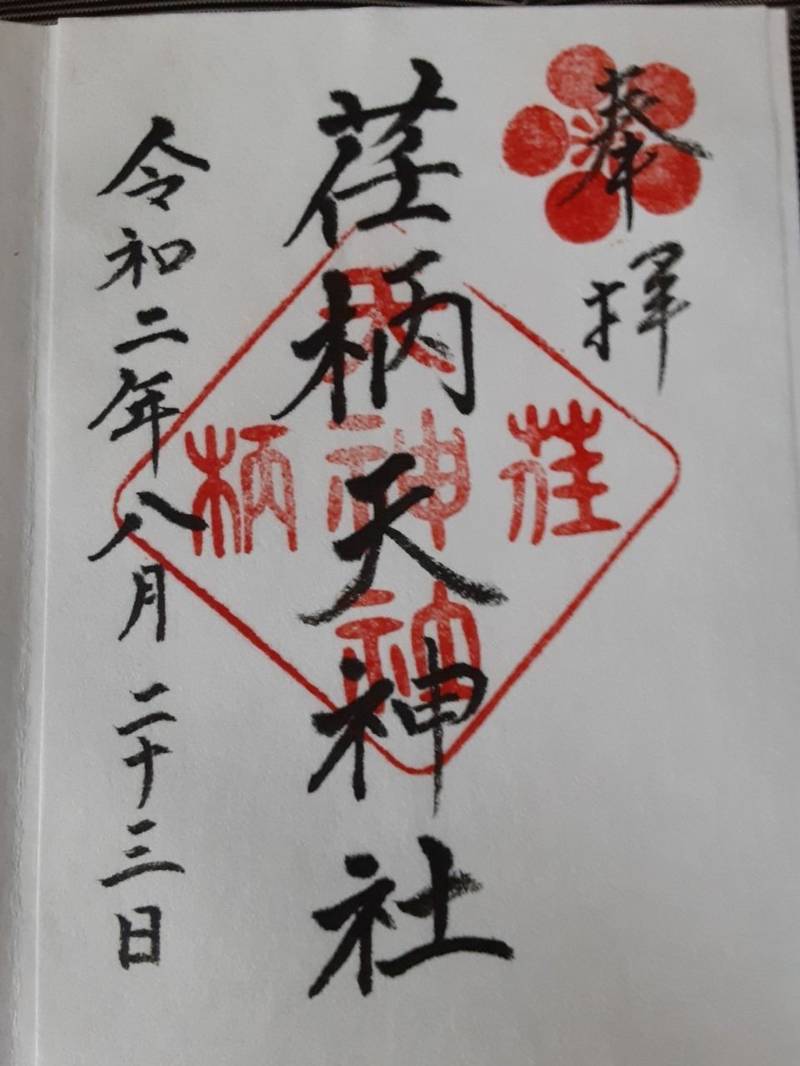 奉拝
荏柄天神社
令和二年八月二十三日